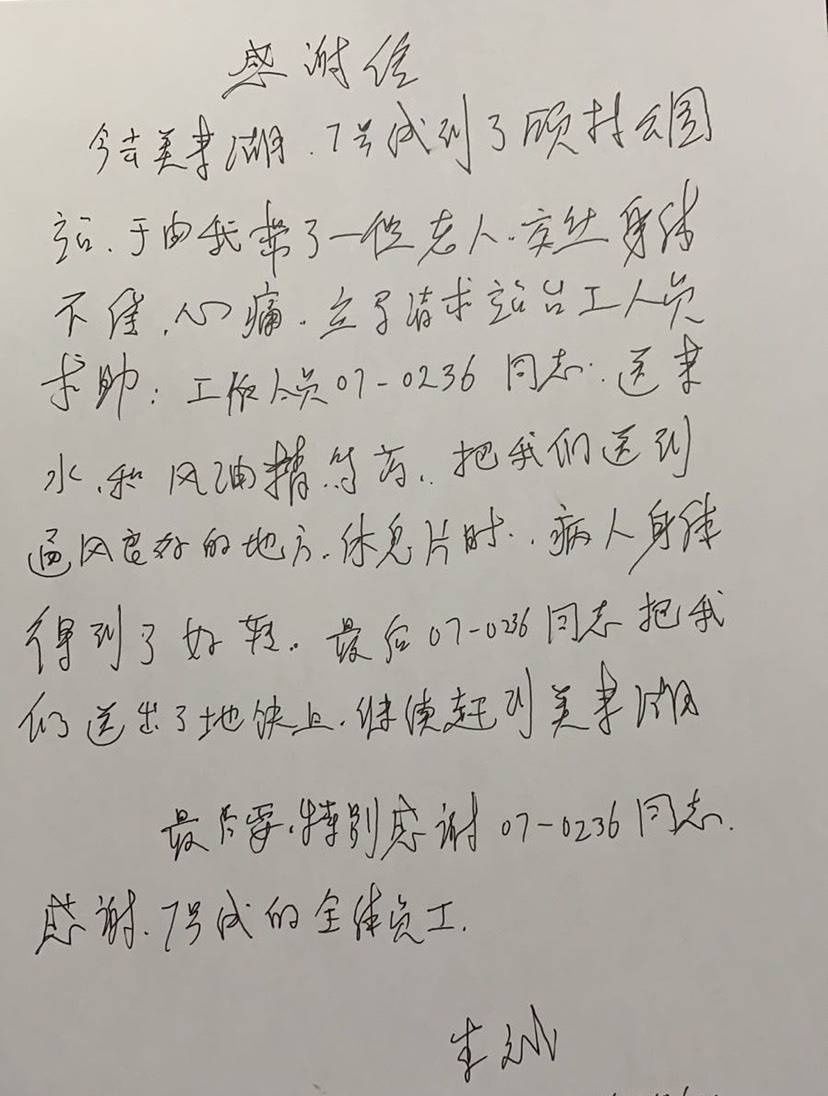 感谢信
今去美兰湖.7号线到了顾村公园
站、于由我带了一位老人.突然身体
不佳,心痛.立马请求站台工人员
求助:工作人员07-0236同志.送来
水、和风油精等药.把我们送到
通风良好的地方.休息片时.病人身体
得到了好转。最后07-0236同志把我
们送出了地铁上.继续赶到美兰湖
最后要.特别感谢07-0236同志.
感谢.7号线的全体员工.